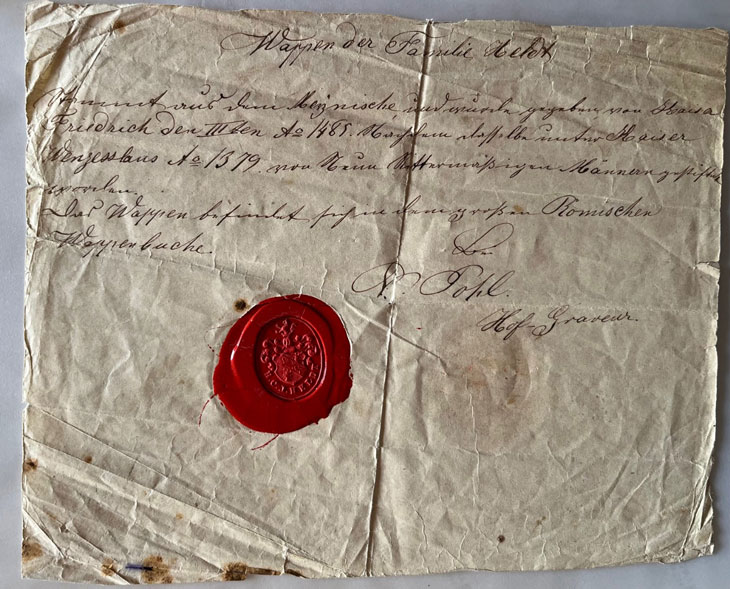 Wappen der Familie Heldt
Stammt aus dem und wurde gegeben von Kaiser
Friedrich den IIIten Ao 1485. Nachdem dasselbe unter Kaiser
Wenzesslaus Ao 1379. von Neun Rittermäßigen Männern gestiftet
worden.
Das Wappen befindet sich in dem großen Römischen
Wappenbuche.
Pohl.
Hof-Graveur.